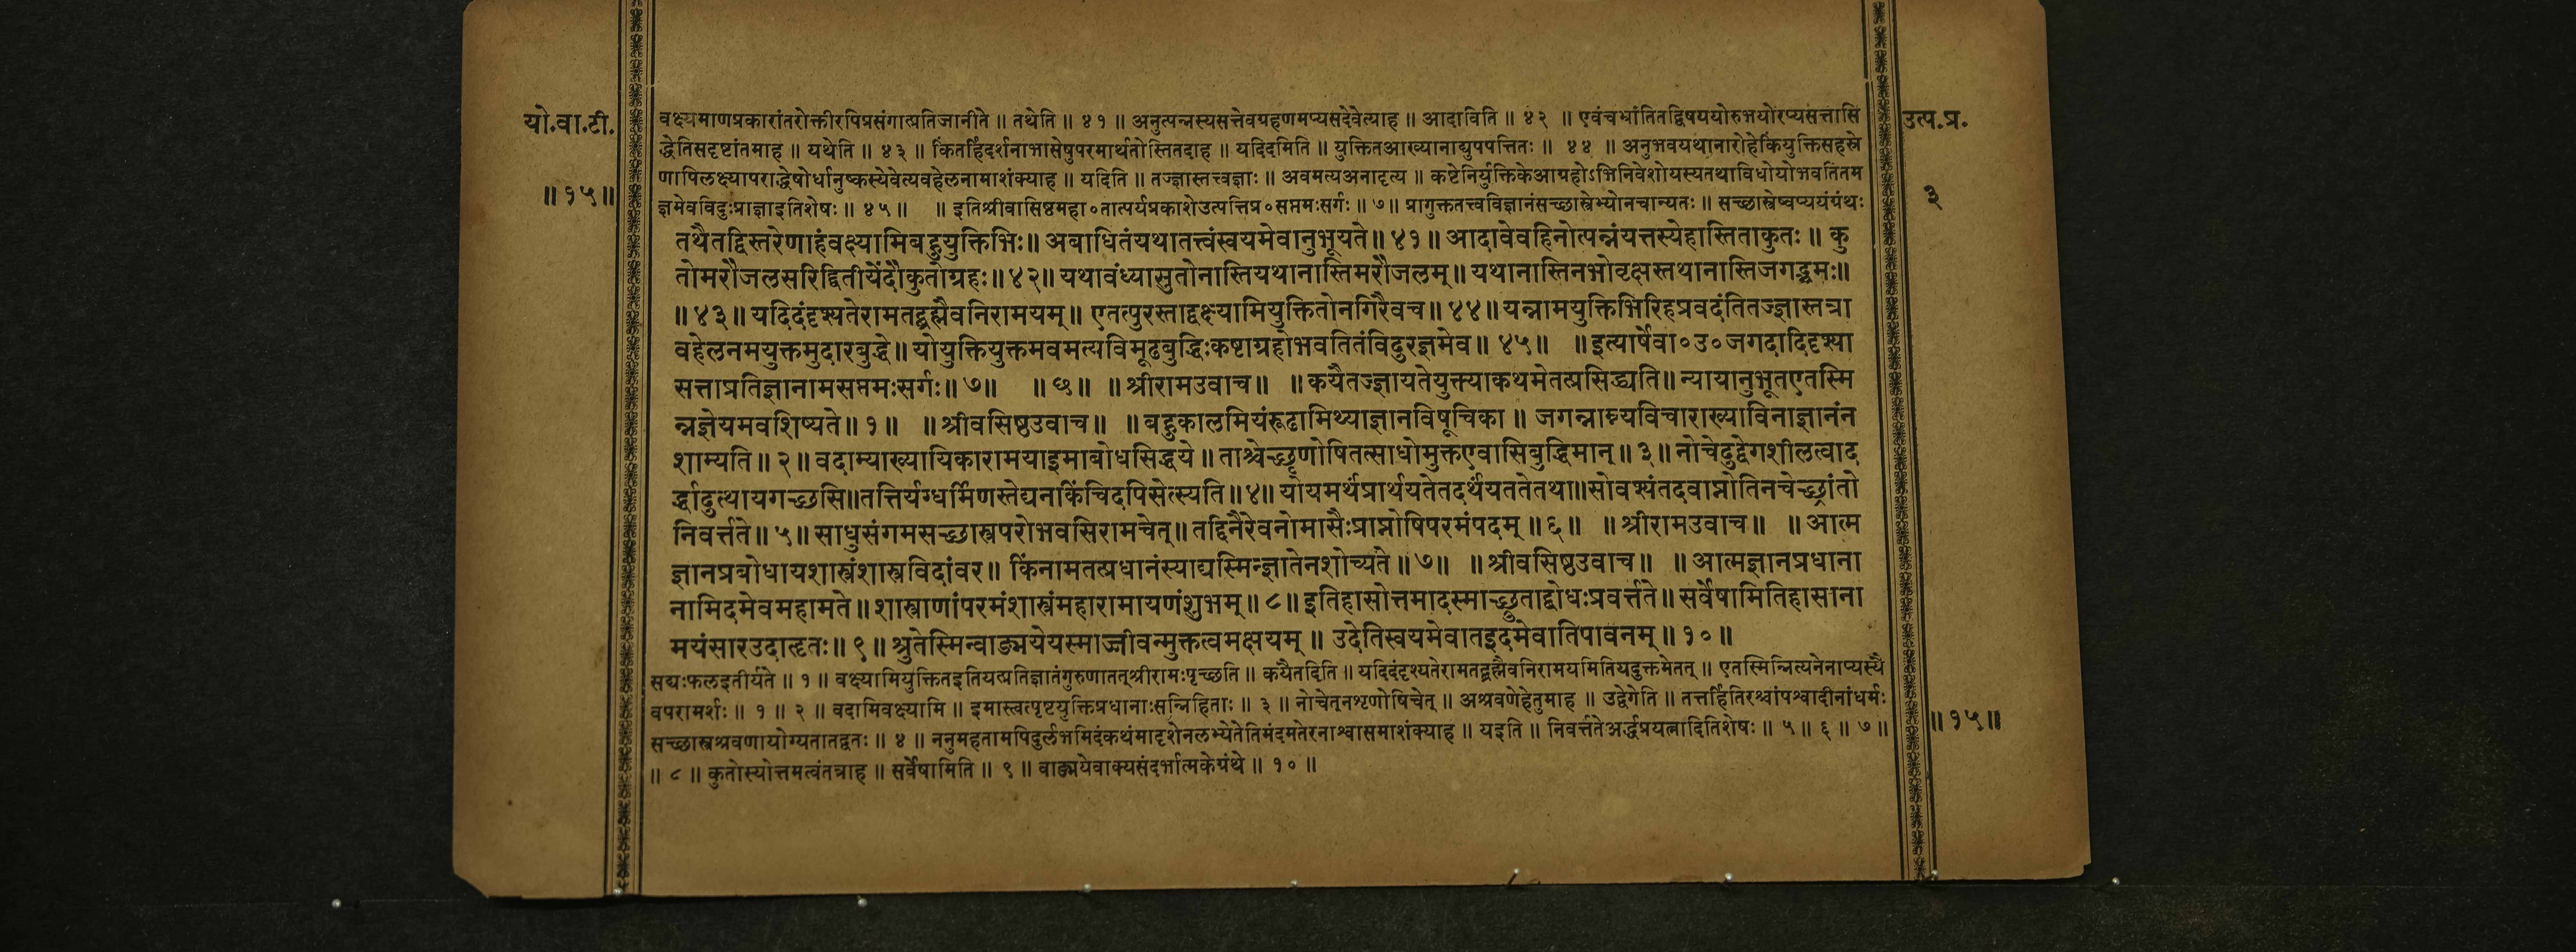 यो.वा.टी.
॥ १५॥
वक्ष्यमाणप्रकारांतरोक्तीरपिप्रसंगात्प्रतिजानीते ॥ तथेति ॥ ४१ ॥ अनुत्पन्नस्यसत्तेवग्रहणमप्यसदेवेत्याह ॥ आदाविति ॥ ४२ ॥ एवंचभ्रांतितद्विषययोरुभयोरप्यसत्तासि
द्धेतिसदृष्टांतमाह ॥ यथेति ॥ ४३ ॥ किंतर्हिदर्शनाभासेषुपरमार्थतोस्तितदाह ॥ यदिदमिति ॥ युक्तितआख्यानाद्युपपत्तितः ॥ ४४ ॥ अनुभवयथानारोहेकिंयुक्तिसहस्रे
णापिलक्ष्यापराद्धेषोर्धानुष्कस्येवेत्यवहेलनामाशंक्याह ॥ यदिति ॥ तज्ज्ञास्तत्त्वज्ञाः ॥ अवमत्यअनादृत्य ॥ कष्टेनिर्युक्तिकेआग्रहोऽभिनिवेशोयस्यतथाविधोयोभवतितम
ज्ञमेवविदुःप्राज्ञाइतिशेषः ॥ ४५ ॥ ॥ इतिश्रीवासिष्ठमहा०तात्पर्यप्रकाशेउत्पत्तिप्र०सप्तमःसर्गः ॥ ७॥ प्रागुक्ततत्त्वविज्ञानंसच्छास्त्रेभ्योनचान्यतः ॥ सच्छास्त्रेष्वप्ययंग्रंथः
तथैतद्विस्तरेणाहंवक्ष्यामिबहुयुक्तिभिः॥ अबाधितंयथातत्त्वंस्वयमेवानुभूयते॥ ४१॥ आदावेवहिनोत्पन्नंयत्तस्येहास्तिताकुतः॥ कु
तोमरौजलसरिद्द्वितीयेंदौकुतोग्रहः॥ ४२॥ यथावंध्यासुतोनास्तियथानास्तिमरौजलम्॥ यथानास्तिनभोवृक्षस्तथानास्तिजगद्भ्रमः॥
॥ ४३॥ यदिदंदृश्यतेरामतद्ब्रह्मैवनिरामयम्॥ एतत्पुरस्ताद्वक्ष्यामियुक्तितोनगिरैवच॥ ४४॥ यन्नामयुक्तिभिरिहप्रवदंतितज्ज्ञास्तत्रा
वहेलनमयुक्तमुदारबुद्धे॥ योयुक्तियुक्तमवमत्यविमूढबुद्धिःकष्टाग्रहोभवतितंविदुरज्ञमेव॥ ४५॥ ॥ इत्यार्षेवा०उ०जगदादिदृश्या
सत्ताप्रतिज्ञानामसप्तमःसर्गः॥ ७॥ ॥ ६९॥ ॥ श्रीरामउवाच॥ ॥ कयैतज्ज्ञायतेयुक्त्याकथमेतत्प्रसिद्ध्यति॥ न्यायानुभूतएतस्मि
न्नज्ञेयमवशिष्यते॥ १॥ ॥ श्रीवसिष्ठउवाच॥ ॥ बहुकालमियंरूढामिथ्याज्ञानविषूचिका॥ जगन्नाम्न्यविचाराख्याविनाज्ञानंन
शाम्यति॥ २॥ वदाम्याख्यायिकारामयाइमाबोधसिद्धये॥ ताश्चेच्छृणोषितत्साधोमुक्तएवासिबुद्धिमान्॥ ३॥ नोचेदुद्वेगशीलत्वाद
र्द्धादुत्थायगच्छसि॥तत्तिर्यग्धर्मिणस्तेद्यनकिंचिदपिसेत्स्यति॥ ४॥ योयमर्थंप्रार्थयतेतदर्थंयततेतथा॥सोवश्यंतदवाप्नोतिनचेच्छ्रांतो
निवर्त्तते॥ ५॥ साधुसंगमसच्छास्त्रपरोभवसिरामचेत्॥ तद्दिनैरेवनोमासैःप्राप्नोषिपरमंपदम्॥ ६॥ ॥ श्रीरामउवाच॥ ॥ आत्म
ज्ञानप्रबोधायशास्त्रंशास्त्रविदांवर॥ किंनामतत्प्रधानंस्याद्यस्मिन्ज्ञातेनशोच्यते॥ ७॥ ॥ श्रीवसिष्ठउवाच॥ ॥ आत्मज्ञानप्रधाना
नामिदमेवमहामते॥ शास्त्राणांपरमंशास्त्रंमहारामायणंशुभम्॥ ८॥ इतिहासोत्तमादस्माच्छ्रुताद्बोधःप्रवर्त्तते॥ सर्वेषामितिहासाना
मयंसारउदाहृतः॥ ९॥ श्रुतेस्मिन्वाङ्मयेयस्माज्जीवन्मुक्तत्वमक्षयम्॥ उदेतिस्वयमेवातइदमेवातिपावनम्॥ १०॥
सद्यःफलइतीर्यते ॥ १ ॥ वक्ष्यामियुक्तितइतियत्प्रतिज्ञातंगुरुणातत्श्रीरामःपृच्छति ॥ कयैतदिति ॥ यदिदंदृश्यतेरामतद्ब्रह्मैवनिरामयमितियदुक्तमेतत् ॥ एतस्मिन्नित्यनेनाप्यस्यै
वपरामर्शः ॥ १ ॥ २ ॥ वदामिवक्ष्यामि ॥ इमास्त्वत्पृष्टयुक्तिप्रधानाःसन्निहिताः ॥ ३ ॥ नोचेत्नशृणोषिचेत् ॥ अश्रवणेहेतुमाह ॥ उद्वेगेति ॥ तत्तर्हितिरश्चांपश्वादीनांधर्मः
सच्छास्त्रश्रवणायोग्यतातद्वतः ॥ ४ ॥ ननुमहतामपिदुर्लभमिदंकथंमादृशेनलभ्येतेतिमंदमतेरनाश्वासमाशंक्याह ॥ यइति ॥ निवर्त्ततेअर्द्धप्रयत्नादितिशेषः ॥ ५ ॥ ६ ॥ ७ ॥
॥ ८ ॥ कुतोस्योत्तमत्वंतत्राह ॥ सर्वेषामिति ॥ ९ ॥ वाङ्मयेवाक्यसंदर्भात्मकेग्रंथे ॥ १० ॥
उत्प.प्र.
३
॥ १५॥